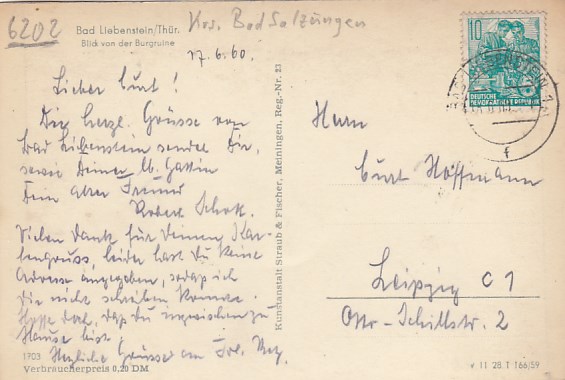 6202
Krs. Bad Salzungen
Bad Liebenstein/Thür.
Blick von der Burgruine
17.6.60.
Lieber Curt!
Die herzl. Grüsse von
Bad Liebenstein sendet Dir,
sowie Deiner lb. Gattin
Dein alter Freund
Robert Schott.
Vielen Dank für Deinen Kar-
tengruss, leider hast Du keine
Adresse angegeben, sodaß ich
Dir nicht schreiben konnte.
Hoffe doch, daß Du inzwischen zu
Hause bist!
Herzliche Grüsse an
1703
Verbraucherpreis 0,20 DM
Kunstanstalt Straub & Fischer, Meiningen, Reg.-Nr. 23
10
DEUTSCHE
DEMOKRATISCHE REPUBLIK
f
Herrn
Curt Hoffmann
Leipzig C 1
Otto-Schill str. 2
V 11 28 T 166/59